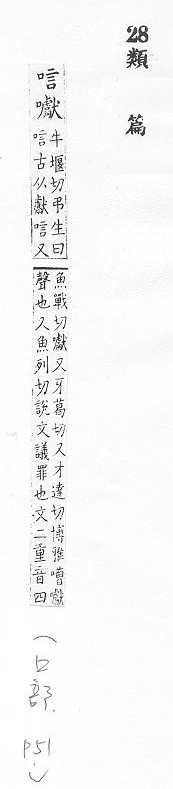 28類篇
唁囐
牛堰切弔生曰
唁古从獻唁又
魚戰切囐又牙葛切又才達切博雅嘈囐
聲也又魚列切說文議罪也文二重音四
（口部. P51.）